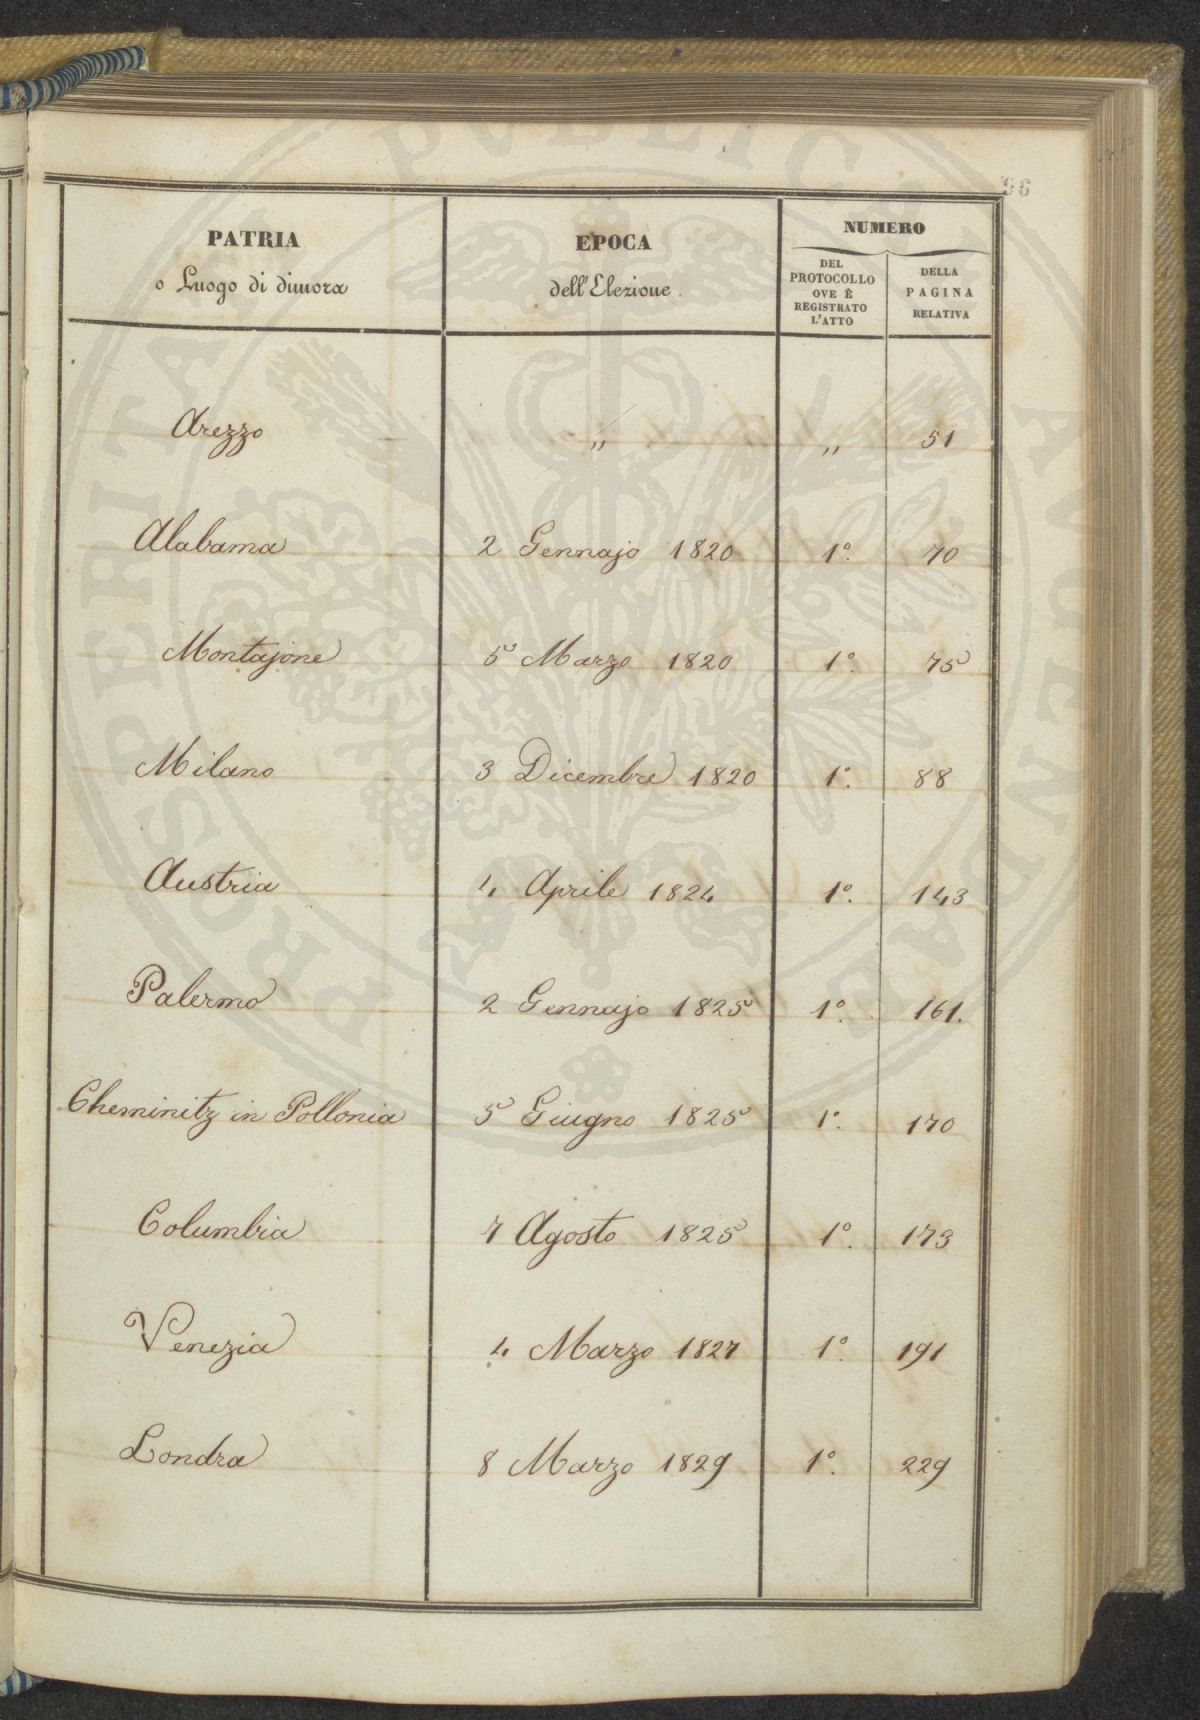 96
PATRIA
o Luogo di dimora
EPOCA
dell'Elezione.
NUMERO
DEL
PROTOCOLLO
OVE È
REGISTRATO
L'ATTO
DELLA
PAGINA
RELATIVA
Arezzo „ „ 51
Alabama 2 Gennajo 1820 1º. 70
Montajone 5 Marzo 1820 1º. 75
Milano 3 Dicembre 1820 1º. 88
Austria 4 Aprile 1824 1º. 143
Palermo 2 Gennajo 1825 1º. 161.
Cheminitz in Pollonia 5 Giugno 1825 1º. 170
Columbia 7 Agosto 1825 1º. 173
Venezia 4 Marzo 1827 1º. 191
Londra 8 Marzo 1829 1º. 229
PROSPERITATI PVBLICAE AVGENDAE